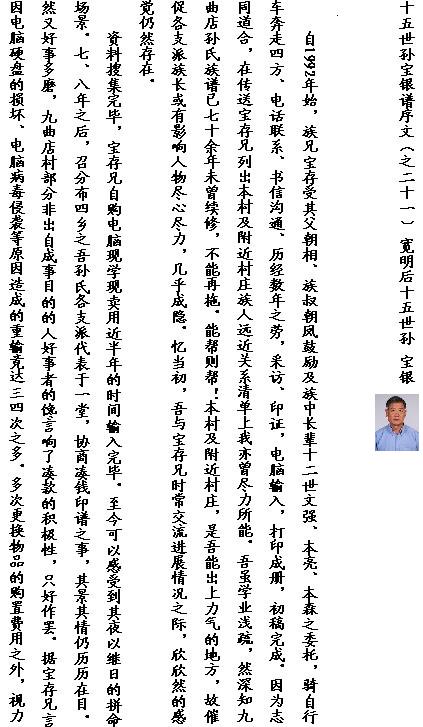 十五世孙宝银谱序文（之二十一） 宽明后十五世孙 宝银
自1992年始，族兄宝存受其父朝相、族叔朝凤鼓励及族中长辈十二世文强、本亮、本森之委托，骑自行
车奔走四方、电话联系、书信沟通、历经数年之劳，采访、印证，电脑输入，打印成册，初稿完成。因为志
同道合，在传送宝存兄列出本村及附近村庄族人远近关系清单上我亦曾尽力所能。吾虽学业浅疏，然深知九
曲店孙氏族谱已七十余年未曾续修，不能再拖。能帮则帮！本村及附近村庄，是吾能出上力气的地方，故催
促各支派族长或有影响人物尽心尽力，几乎成隐。忆当初，吾与宝存兄时常交流进展情况之际，欣欣然的感
觉仍然存在。
资料搜集完毕，宝存兄自购电脑现学现卖用近半年的时间输入完毕。至今可以感受到其夜以继日的拼命
场景。七、八年之后，召分布四乡之吾孙氏各支派代表于一堂，协商凑钱印谱之事，其景其情仍历历在目。
然又好事多磨，九曲店村部分非出自成事目的的人好事者的馋言响了凑款的积极性，只好作罢。据宝存兄言
因电脑硬盘的损坏、电脑病毒侵袭等原因造成的重输竟达三四次之多。多次更换物品的购置费用之外，视力